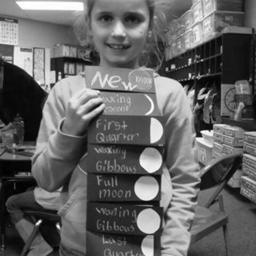 New moon
Waxing
Crescent
First
Quarter
Waxing
Gibbous
Full
moon
Waning
Gibbous
Last
Quarter